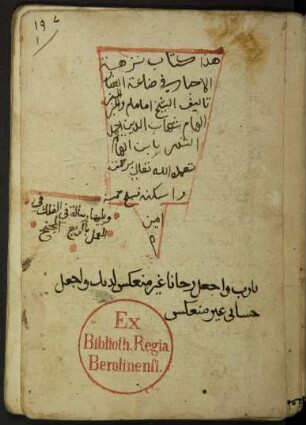 ١٩٧
١
هذا كتاب نزهة
الاحباب في صناعة الحساب
تاليف الشيخ الامام والحبر
الهمام شهاب الدين احمد
الشهير بابن الهائم
تغمده الله تعالى برحمته
واسكنه فسيح جنته
امين
م
ويليها رسالة في الفلك في
العمل بالربع المجنح
يارب واجعل رجانا غير منعكس لديك واجعل
حسابي غير منعكس
Ex
Biblioth. Regia
Berolinensi.